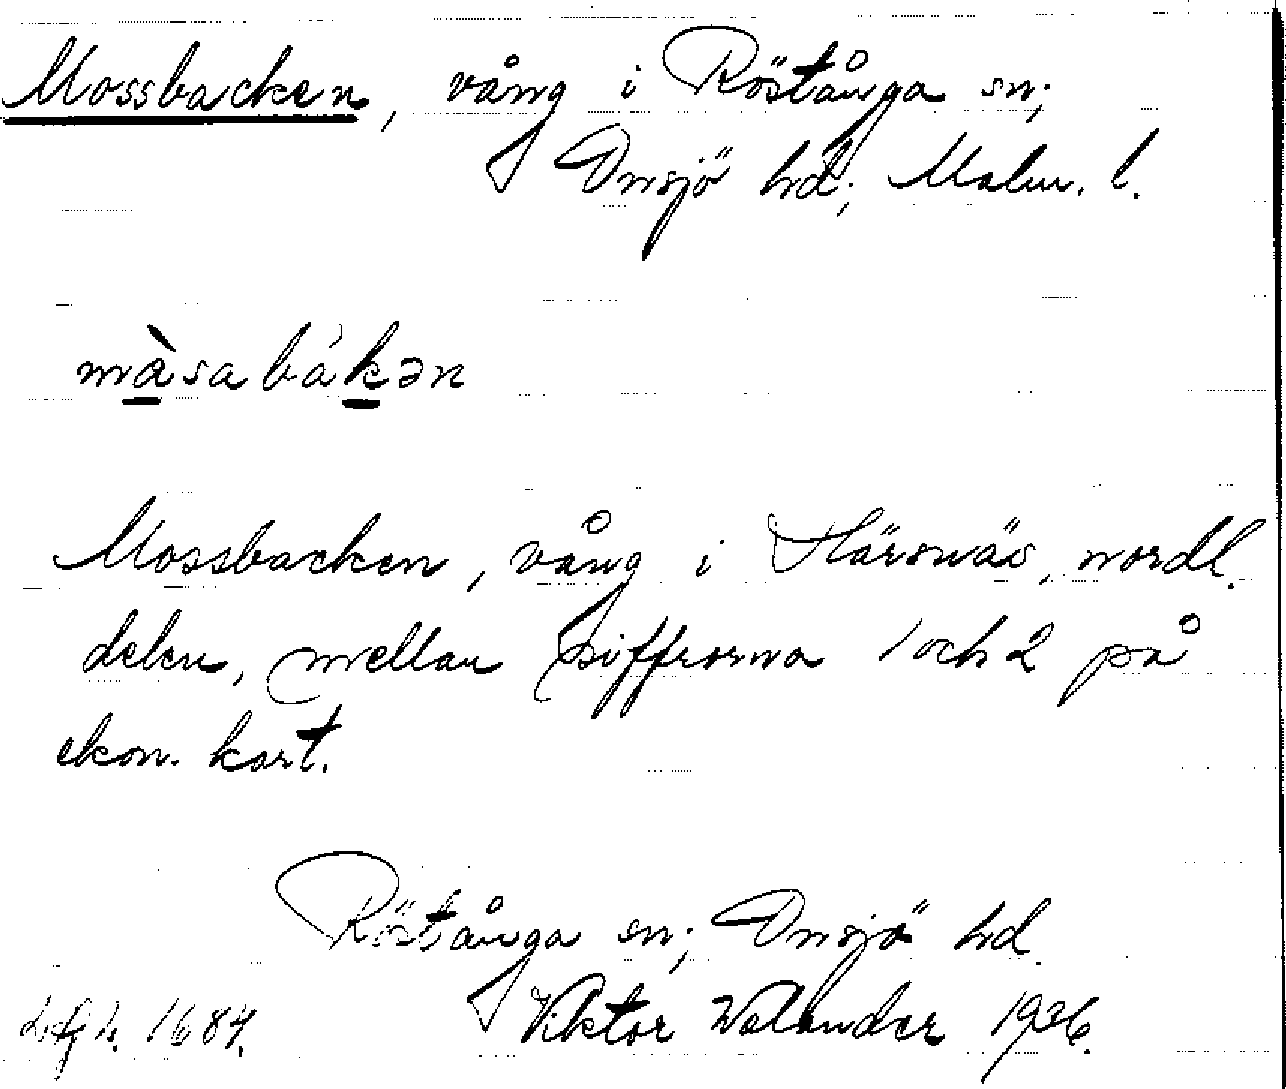 Mossbacken, vång i Röstånga sn;
Onsjö hd; Malm. l.
màsabákən
Mossbacken, vång i Härsnäs, nordl.
delen, mellan siffrorna 1 och 2 på
ekon. kart.
Röstånga sn; Onsjö hd.
Viktor Welander 1936.
1684.